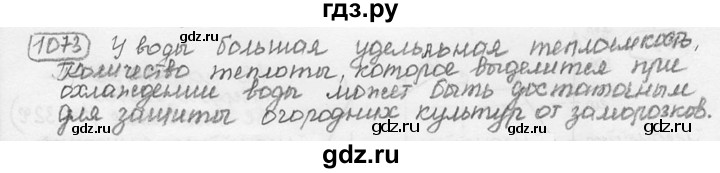 гдз.ру
1073 У воды большая удельная теплоемкость,
Количество теплоты, которое выделится при
охлаждении воды может быть достаточным
для защиты огородных культур от заморозков.
gdz.ru
gdz.ru
gdz.ru
gdz.ru
gdz.ru
gdz.ru
gdz.ru